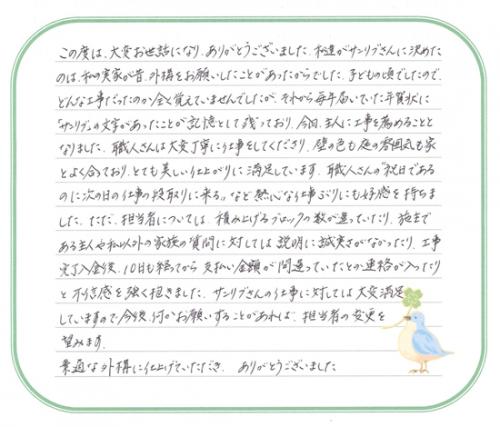 この度は、大変お世話になり、ありがとうございました。私達がサンリブさんに決めた
のは、私の実家が昔、外構をお願いしたことがあったからでした。子どもの頃でしたので、
どんな工事だったのか全く覚えていませんでしたが、それから毎年届いていた年賀状に
「サンリブ」の文字があったことが記憶として残っており、今回、主人に工事を薦めることと
なりました。職人さんは大変丁寧に仕事をしてくださり、壁の色も庭の雰囲気も家
とよく合っており、とても美しい仕上がりに満足しています。職人さんの"祝日である
のに次の日の仕事の段取りに来る"など熱心な仕事ぶりにも好感を持ちま
した。ただ、担当者については、積み上げるブロックの数が違っていたり、施主で
ある主人や私以外の家族の質問に対しては説明に誠実さがなかったり、工事
完了入金後、10日も経ってから支払い金額が間違っていたとの連絡が入ったり
と不信感を強く抱きました。サンリブさんの仕事に対しては大変満足
していますので今後、何かお願いすることがあれば、担当者の変更を
望みます。
素適な外構に仕上げていただき、ありがとうございました